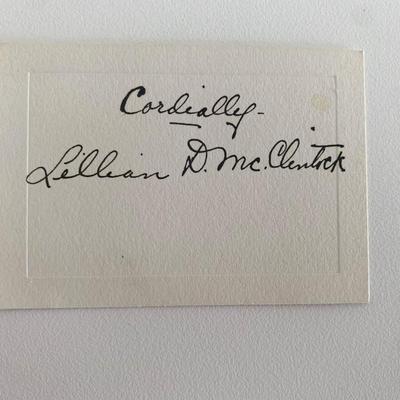 Cordially-
Lillian D. Mc.Clintock